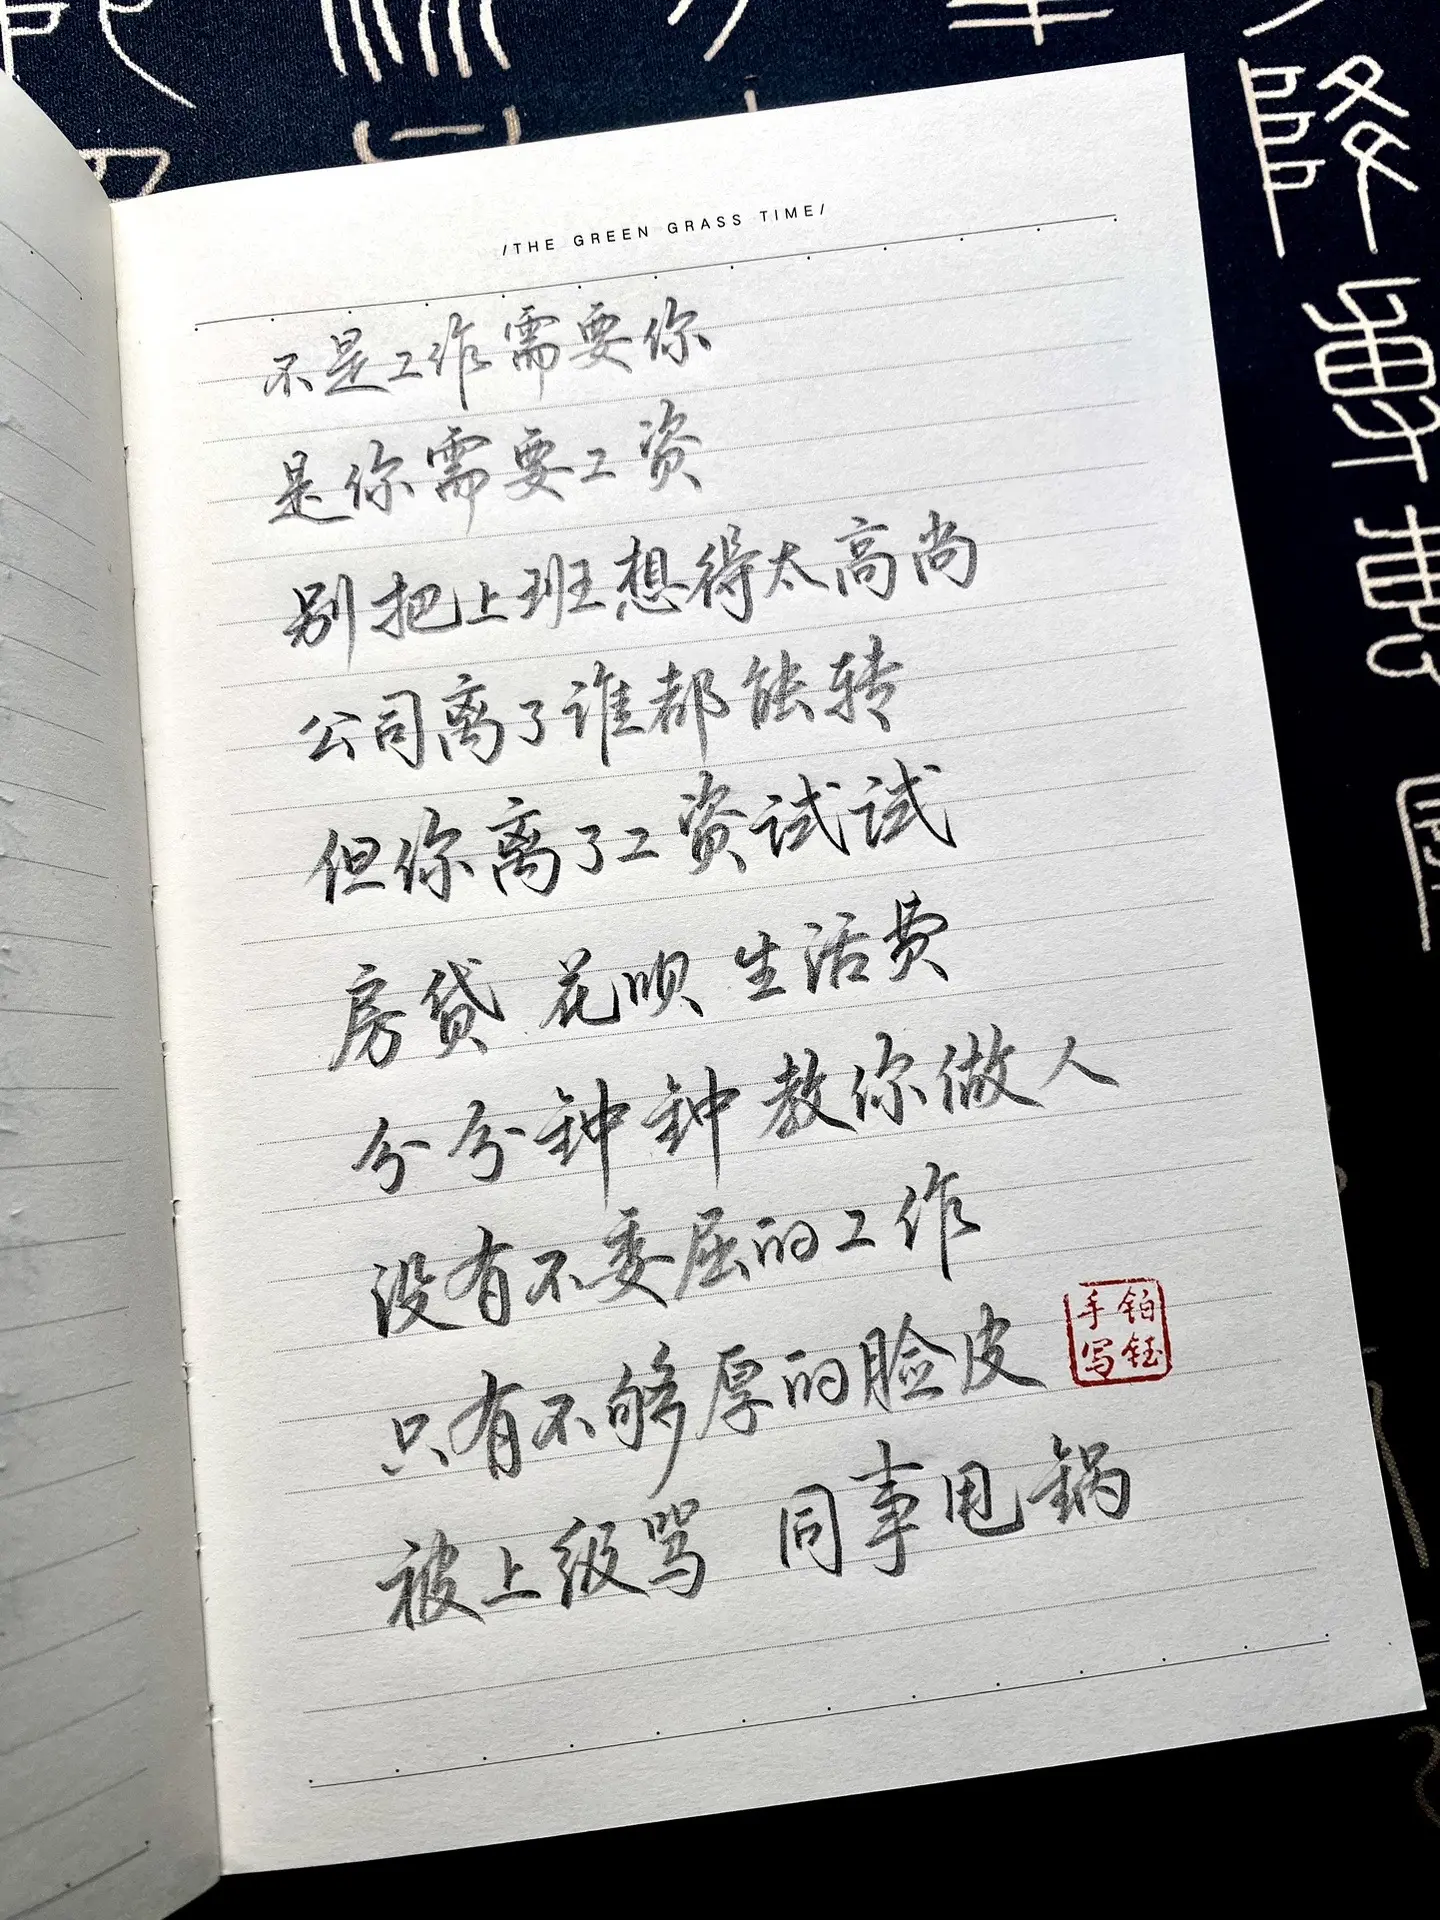 /THE GREEN GRASS TIME/
不是工作需要你
是你需要工资
别把上班想得太高尚
公司离了谁都能转
但你离了工资试试
房贷 花呗 生活费
分分钟钟教你做人
没有不委屈的工作
只有不够厚的脸皮
被上级骂 同事甩锅
铂钰
手写